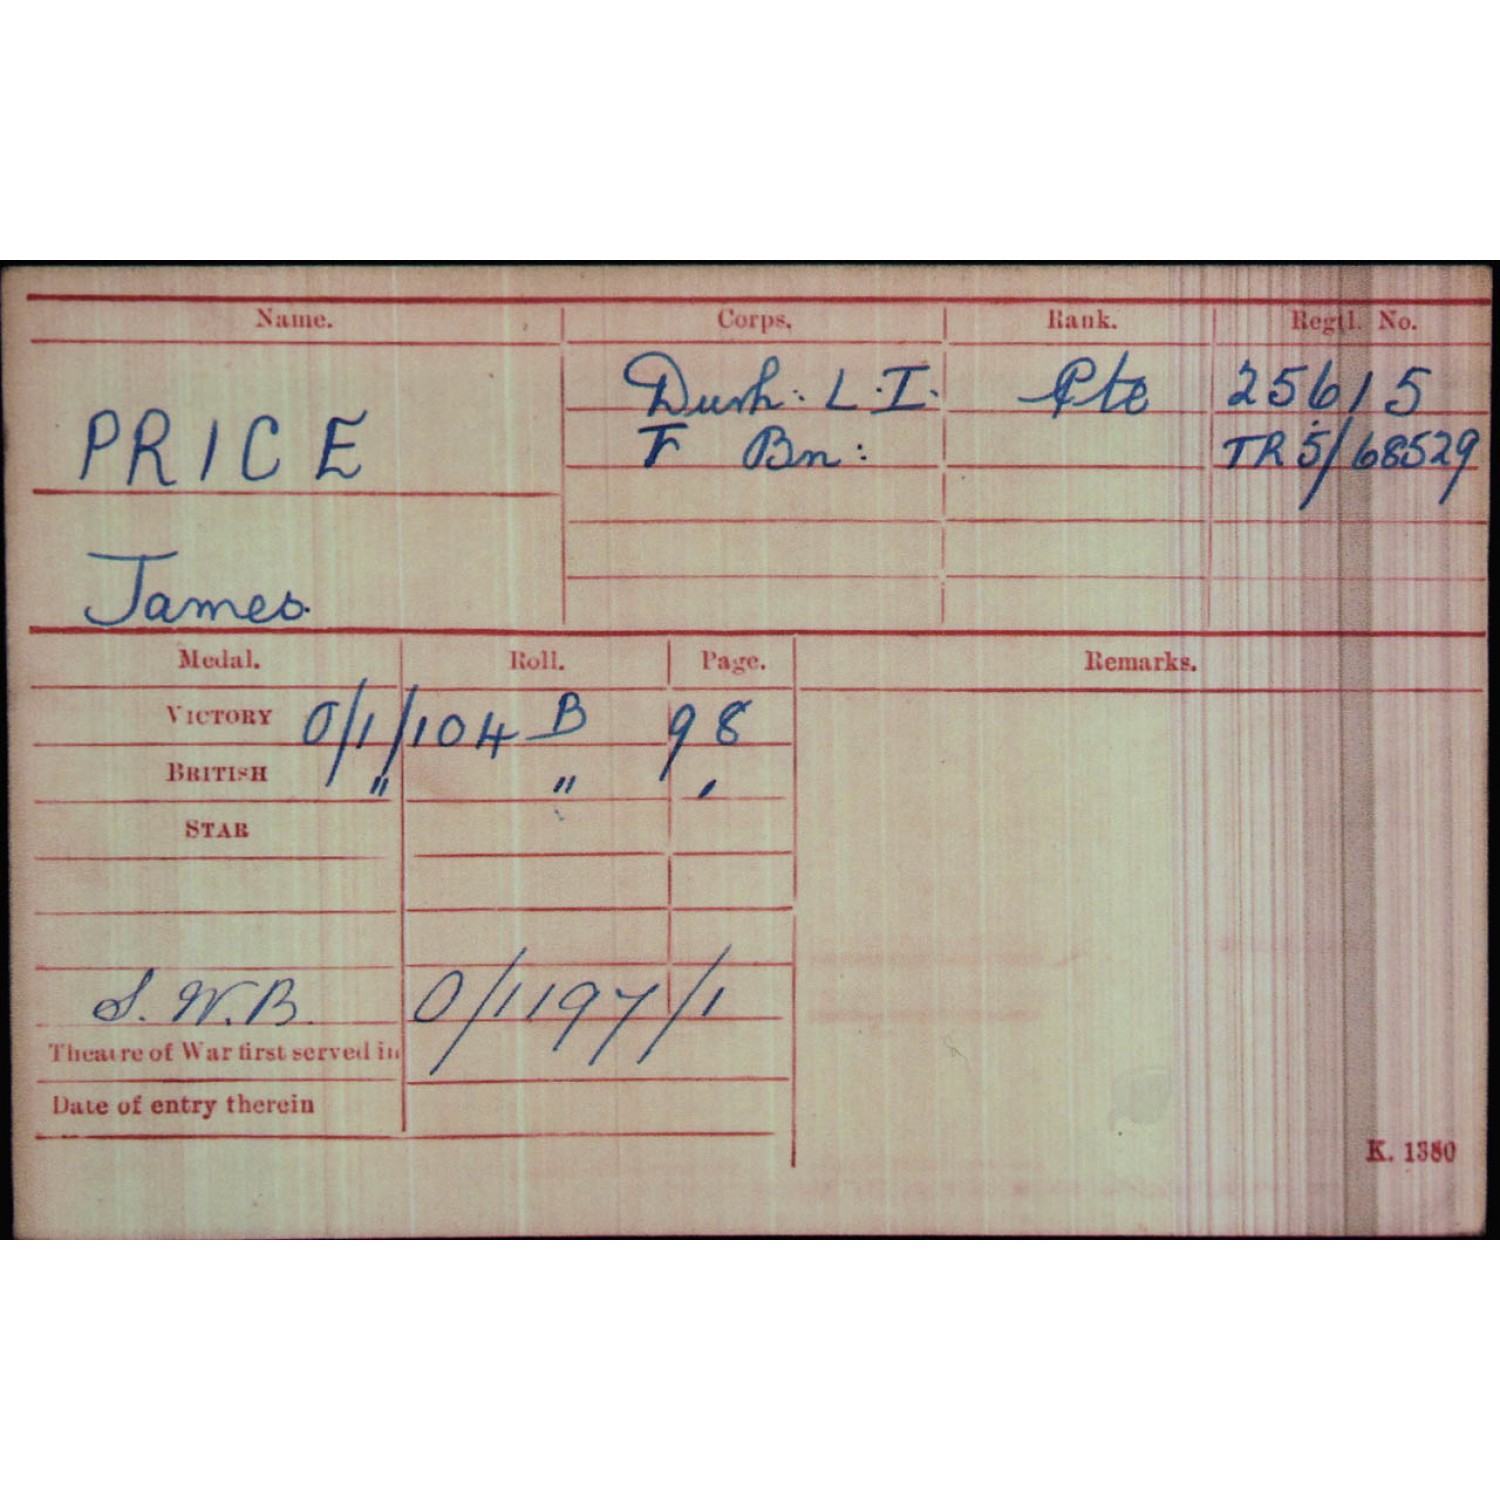 Name. Corps. Rank. Regtl. No.
PRICE Durh: L.I. Pte 25615
T Bn: TR5/68529
James.
Medal. Roll. Page. Remarks.
VICTORY O/1/104 B 98
BRITISH " " "
STAR
S.W.B. O/1197/1
Theatre of War first served in
Date of entry therein
K. 1380